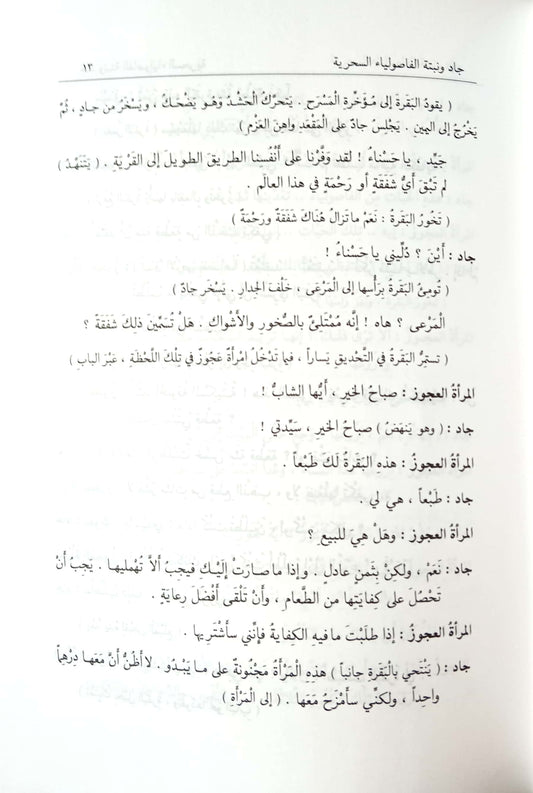 جاد ونبتة الفاصولياء السحرية ١٣
( يقودُ البَقَرةَ إلى مُؤَخِّرةِ المَسْرَحِ . يَتحرَّكُ الحَشْدُ وهْوَ يَضْحَكُ ، ويَسْخَرُ من جادٍ ، ثُمَّ
يَخْرُجُ إلى اليمينِ . يَجْلِسُ جادٌ على المَقْعَدِ واهِنَ العَزْمِ )
جَيِّد ، يا حَسْناءُ ! لقد وَفَّرْنا على أنْفُسِنا الطريقَ الطويلَ إلى القَرْيَةِ . ( يَتَنَهَّدُ )
لم تَبْقَ أيُّ شَفَقَةٍ أو رَحْمَةٍ في هذا العالَمِ .
( تَخُورُ البَقَرةُ : نَعَمْ ما تَزالُ هُناكَ شَفَقةٌ ورَحْمَةٌ )
جاد : أيْنَ ؟ دُلِّيني يا حَسْناءُ !
( تُومِئُ البَقَرةُ بِرَأْسِها إلى المَرْعَى ، خَلْفَ الجِدارِ . يَسْخَر جادٌ )
المَرْعى ؟ هاه ! إنَّه مُمْتَلِئٌ بالصُّخورِ والأشْواكِ . هَلْ تُسَمِّينَ ذلكَ شَفَقةً ؟
( تستمِرُّ البَقَرةُ في التَّحْديقِ يَساراً ، فيما تَدْخُلُ امْرأةٌ عَجُوزٌ في تِلْكَ اللَّحْظَةِ ، عَبْرَ البابِ )
المرأةُ العجوز : صباحُ الخَيرِ ، أيُّها الشابُّ !
جاد : ( وهو يَنهَضُ ) صباحُ الخَيرِ ، سَيِّدتي !
المرأةُ العجوز : هذهِ البَقَرةُ لَكَ طَبْعاً .
جاد : طَبْعاً ، هي لي .
المرأةُ العجوز : وهَلْ هِيَ للبيعِ ؟
جاد : نَعَمْ ، ولكنْ بِثَمنٍ عادلٍ . وإذا ما صارَتْ إلَيْكِ فيَجِبُ ألاَّ تُهْمِليها . يَجِبُ أنْ
تَحْصُلَ على كِفايَتِها من الطَّعامِ ، وأنْ تَلْقى أفْضَلَ رِعايةٍ .
المرأةُ العجوز : إذا طَلَبْتَ ما فيهِ الكِفايةُ فإنَّني سأشْتَرِيها .
جاد : ( يَنْتَحي بالْبَقَرةِ جانباً ) هذهِ المَرْأةُ مَجْنُونةٌ على ما يَبْدُو . لا أظُنُّ أنَّ مَعَها دِرْهَماً
واحِداً ، ولكنِّي سأمْزَحُ مَعَها . ( إلى المَرْأةِ )